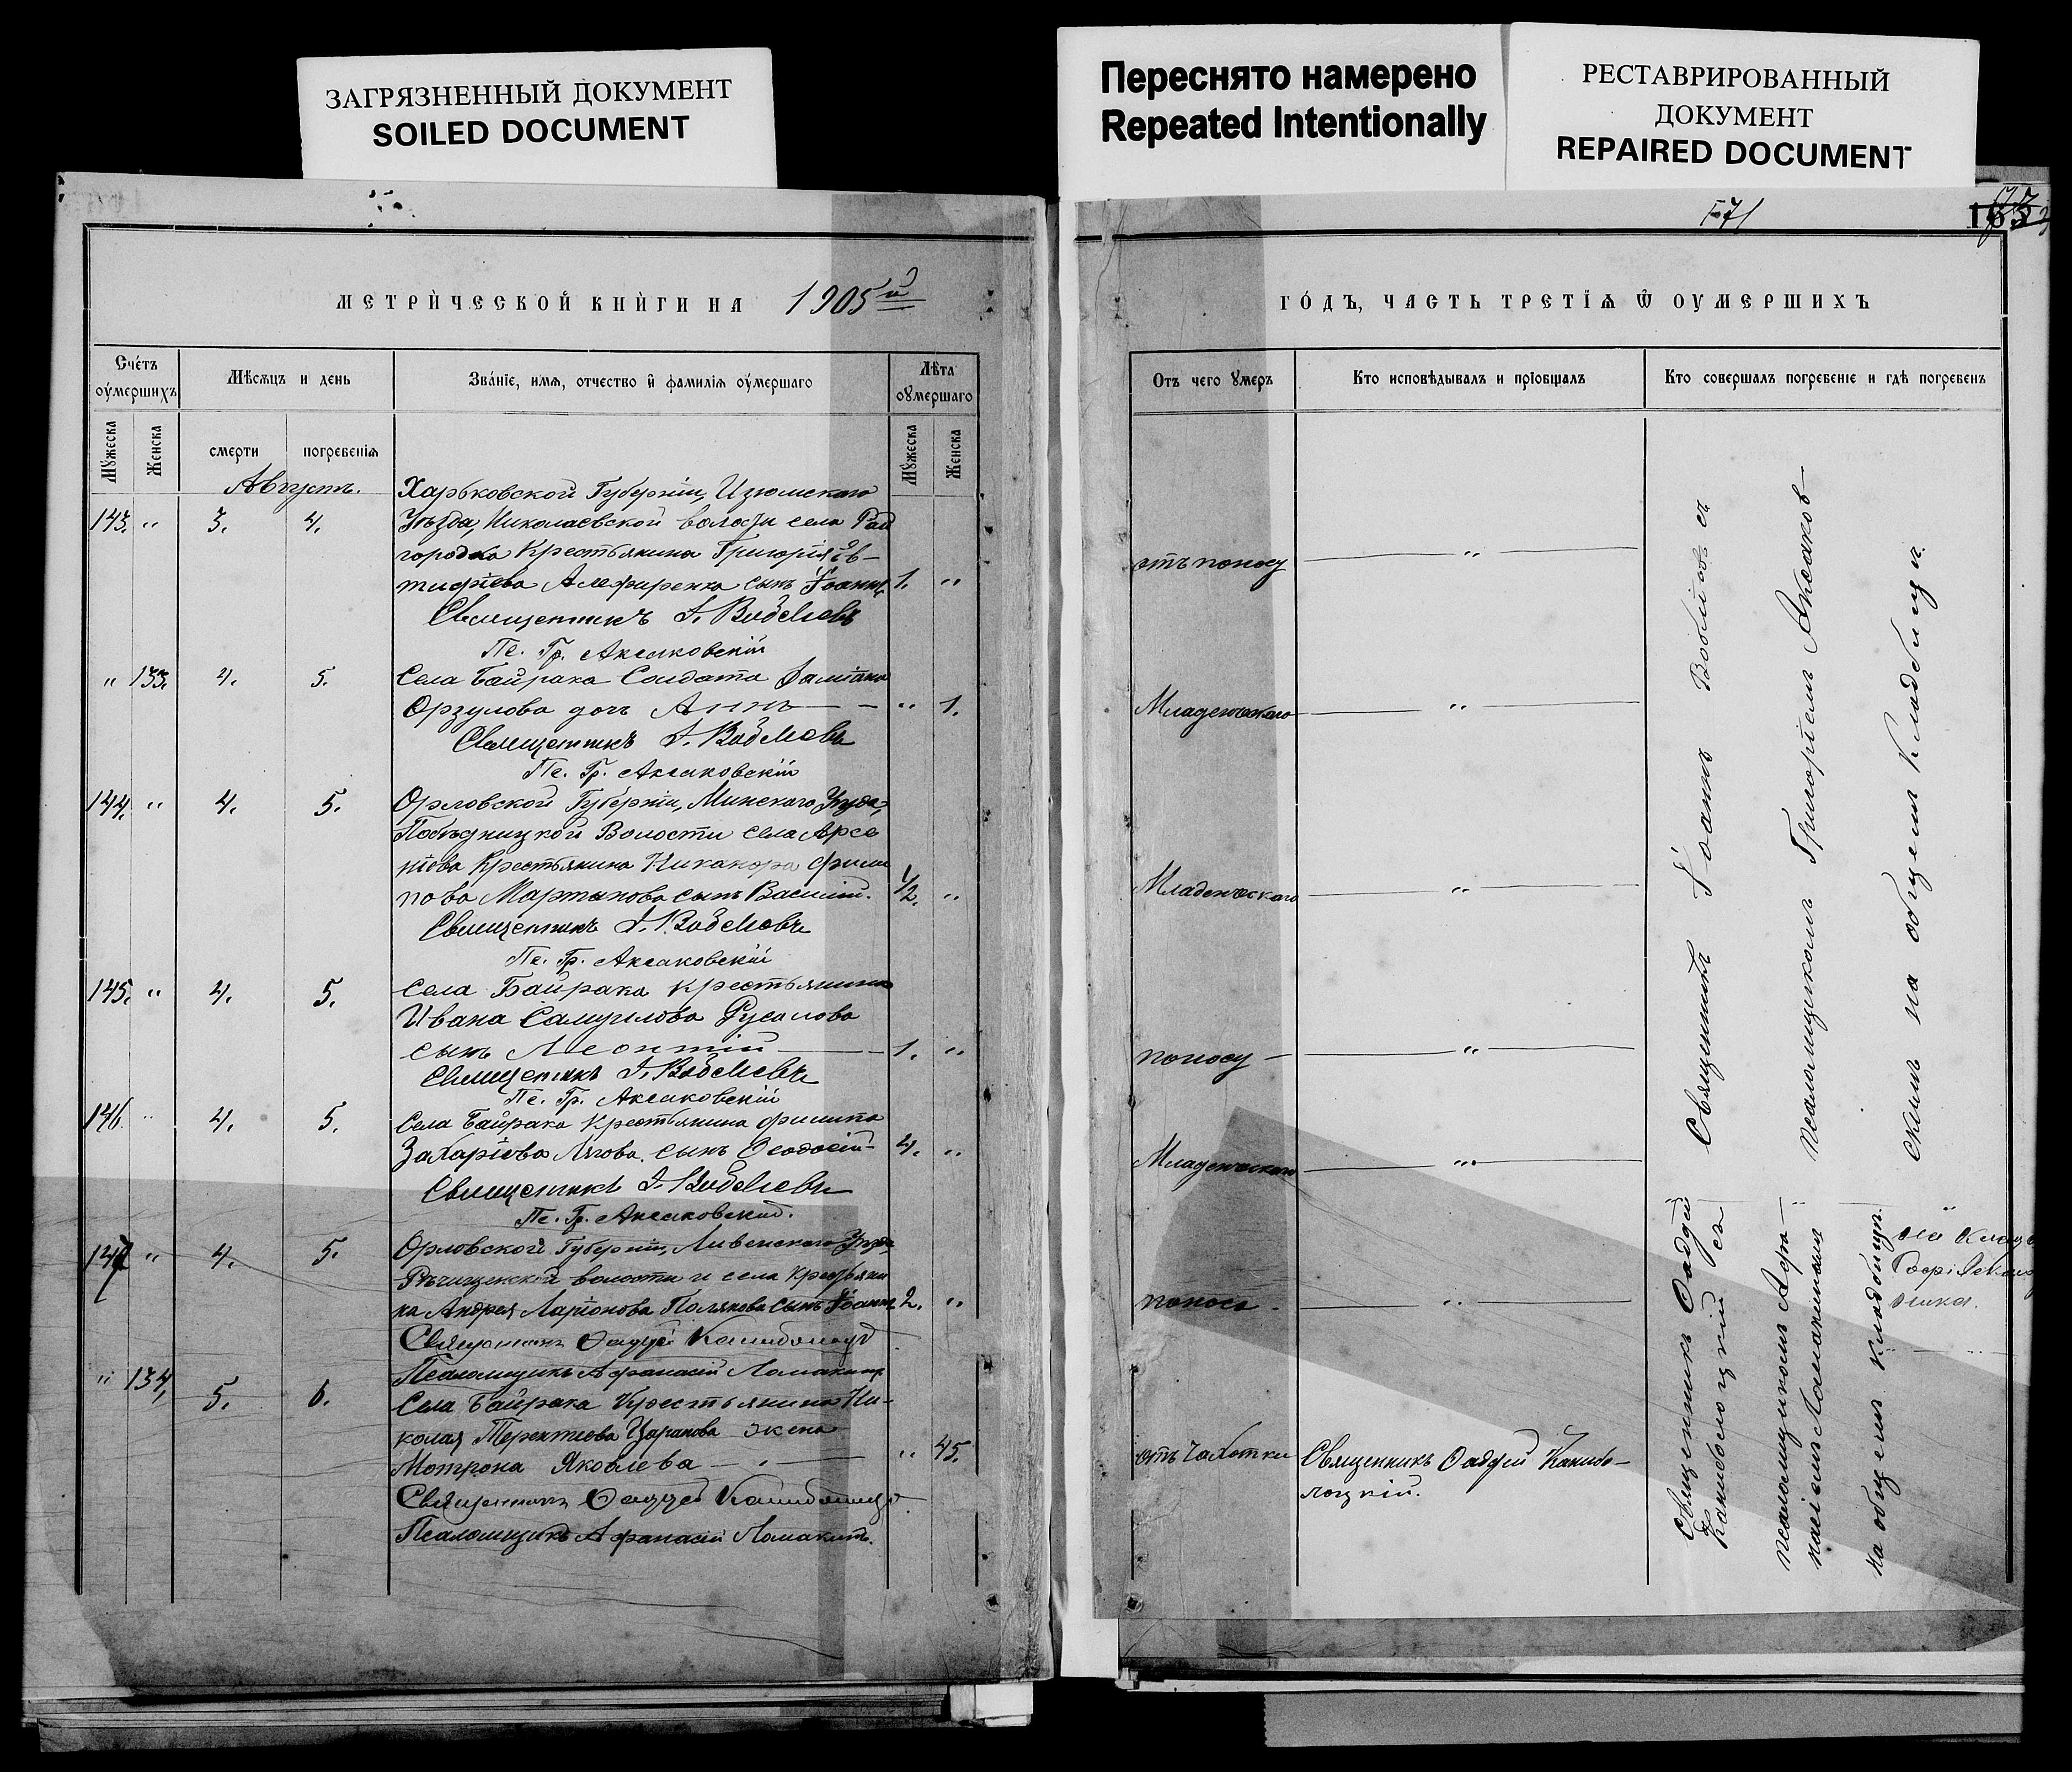 ЗАГРЯЗНЕННЫЙ ДОКУМЕНТ
SOILED DOCUMENT
Переснято намерено
Repeated Intentionally
РЕСТАВРИРОВАННЫЙ
ДОКУМЕНТ
REPAIRED DOCUMENT
МЕТРИЧЕСКОЙ КНИГИ НА 1905й
Счетъ оумершихъ
Мѣсяцъ и день
Званіе, имя, отчество и фамилія оумершаго
Лѣта оумершаго
Мужеска
Женска
смерти
погребенія
Мужеска
Женска
Августъ.
Харьковской Губерніи, Изюмскаго
143. " 3. 4. Уѣзда, Николаевской волости села Рай
городка Крестьянина Григорія Ев-
тифіева Алефиренка сынъ Іоаннъ 1. "
Священникъ І.
Пс. Гр. Аксаковскій
" 133. 4. 5. Села Байрака Солдата Даміана
Орзулова дочь Анна " 1.
Священникъ І.
Пс. Гр. Аксаковскій
144. " 4. 5. Орловской Губерніи, Уѣзда,
Волости села Арсе
ніева Крестьянина Никанора Филип
пова Мартынова сынъ Василій. 1/2. "
Священникъ І.
Пс. Гр. Аксаковскій
145. " 4. 5. Села Байрака Крестьянина
Ивана Самуилова Русалова
сынъ Леонтій 1. "
Священникъ І.
Пс. Гр. Аксаковскій
146. " 4. 5. Села Байрака Крестьянина Филиппа
Захаріева Лягова сынъ Ѳеодосій 4. "
Священникъ І.
Пс. Гр. Аксаковскій.
147 " 4. 5. Орловской Губерніи, Ливенскаго Уѣзда
Рѣчицкой волости и села Крестьяни
на Андрея Ларіонова Полякова сынъ Іоаннъ 2. "
Священникъ Ѳаддей
Псаломщикъ Афанасій Ломакинъ
" 134, 5. 6. Села Байрака Крестьянина Ни-
колая Терентиева жена
Мотрона Яковлева " 45.
Священникъ Ѳаддей
Псаломщикъ Афанасій Ломакинъ.
ГОДЪ, ЧАСТЬ ТРЕТІЯ Ѿ ОУМЕРШИХЪ
Отъ чего умеръ
Кто исповѣдывалъ и пріобщалъ
Кто совершалъ погребеніе и гдѣ погребенъ
отъ поносу "
Младенческаго "
Младенческаго "
поносу "
Младенческаго "
поноса "
отъ чахотки Священникъ Ѳаддей Канибо-
лоцкій.
Священникъ Іоаннъ съ
псаломщикомъ Григоріемъ Аксаков-
скимъ на общемъ кладбищѣ.
Священникъ Ѳаддей
Каниболоцкій съ
псаломщикомъ Афа-
насіемъ Ломакинымъ
на общемъ кладбищѣ.